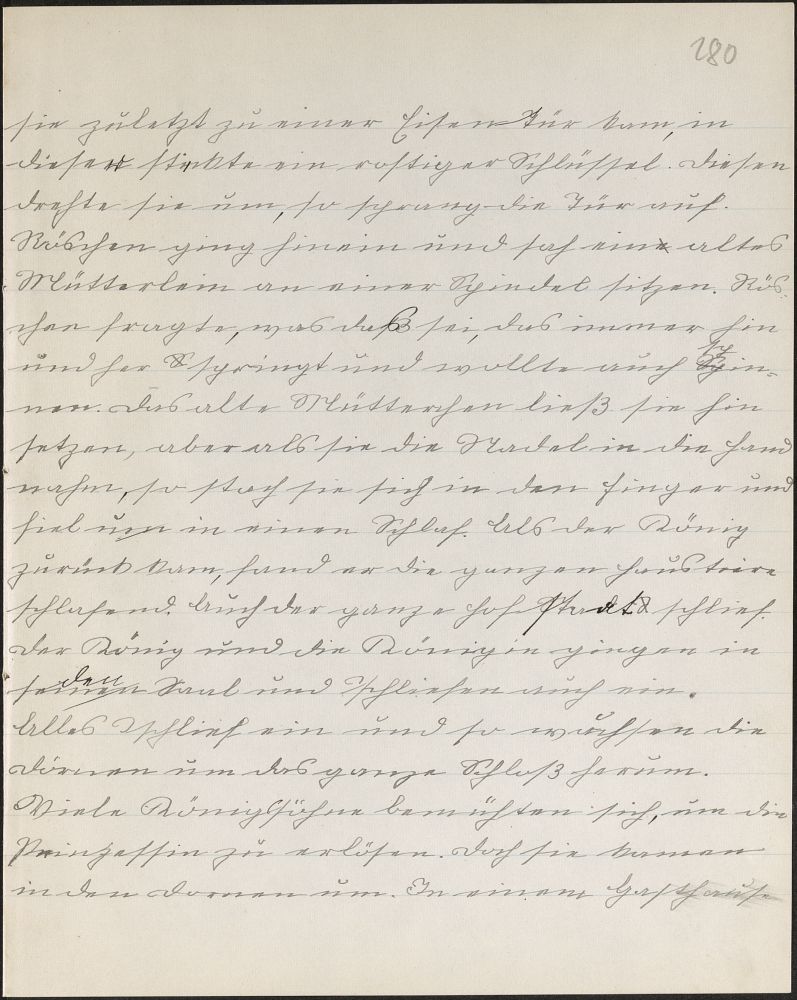 280
sie zuletzt zu einer Eisen-Tür kam, in
dieser steckte ein rostiger Schlüssel. Diesen
drehte sie um, so sprang die Tür auf.
Röschen ging hinein und sah ein altes
Mütterlein an einer Spindel sitzen. Rös-
chen fragte, was daß sei, das immer hin
und her springt und wollte auch spin-
nen. Das alte Mütterchen ließ sie hin
setzen, aber als sie die Nadel in die Hand
nahm, so stach sie sich in den Finger und
fiel in einen Schlaf. Als der König
zurück kam, fand er die ganzen Haustiere
schlafend. Auch der ganze Hofstadt schlief.
Der König und die Königin gingen in
den Saal und schliefen auch ein.
Alles schlief ein und so wuchsen die
Dörnen um das ganze Schloß herum.
Viele Königssöhne bemühten sich, um die
Prinzessin zu erlösen. Doch sie kamen
in den Dornen um. In einem Gasthause